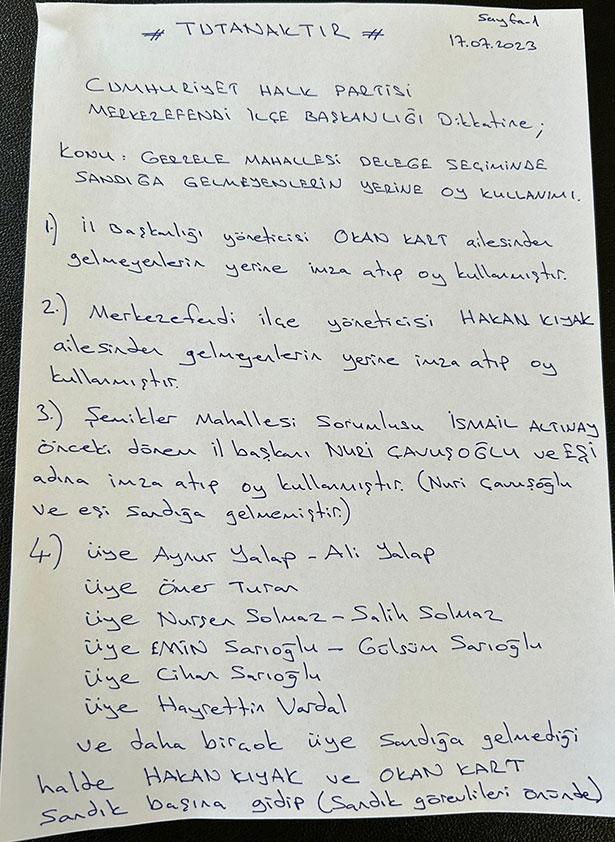 Sayfa-1
# TUTANAKTIR #
17.07.2023
CUMHURİYET HALK PARTİSİ
MERKEZEFENDİ İLÇE BAŞKANLIĞI Dikkatine;
KONU: GERZELE MAHALLESİ DELEGE SEÇİMİNDE
SANDIĞA GELMEYENLERİN YERİNE OY KULLANIMI.
1.) İl Başkanlığı yöneticisi OKAN KART ailesinden
gelmeyenlerin yerine imza atıp oy kullanmıştır.
2.) Merkezefendi ilçe yöneticisi HAKAN KIYAK
ailesinden gelmeyenlerin yerine imza atıp oy
kullanmıştır.
3.) Şemikler Mahallesi Sorumlusu İSMAİL ALTINAY
önceki dönem il başkanı NURİ ÇAVUŞOĞLU ve EŞİ
adına imza atıp oy kullanmıştır. (Nuri Çavuşoğlu
ve eşi sandığa gelmemiştir.)
4.) üye Aynur Yalap - Ali Yalap
üye Ömer Turan
üye Nurşen Solmaz - Salih Solmaz
üye EMİN Sarıoğlu - Gülsüm Sarıoğlu
üye Cihan Sarıoğlu
üye Hayrettin Vardal
ve daha birçok üye sandığa gelmediği
halde HAKAN KIYAK ve OKAN KART
Sandık başına gidip (Sandık görevlileri önünde)